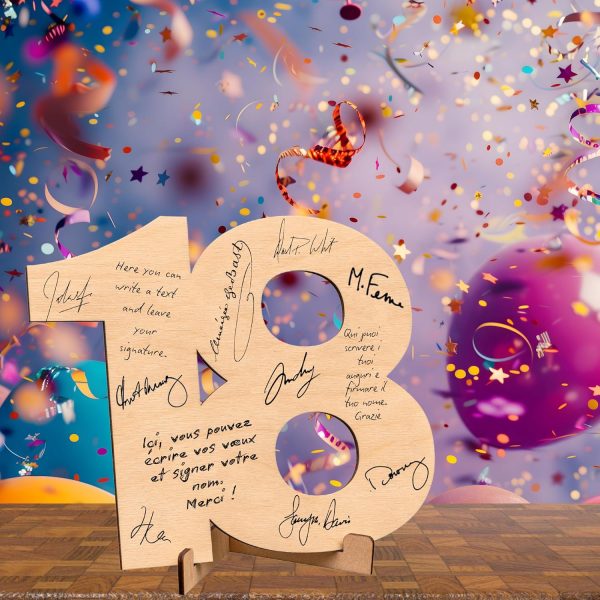 18
Here you can
write a text
and leave
your
signature.
M. Feme
Qui puoi
scrivere i
tuoi
auguri e
firmare il
tuo nome.
Grazie
Andy
Ici, vous pouvez
écrire vos vœux
et signer votre
nom.
Merci !